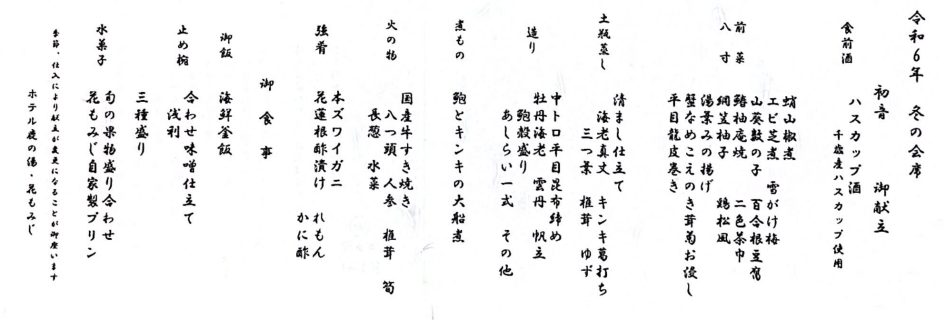 令和6年 冬の会席
初音 御献立
食前酒
ハスカップ酒
千歳産ハスカップ使用
前菜
八寸
蛸山椒煮
エビ芝煮 雪がけ梅
山葵数の子 百合根豆腐
鰆柚庵焼 二色茶巾
網笠柚子 鶏松風
湯葉みの揚げ
蟹なめこえのき茸菊お浸し
平目龍皮巻き
土瓶蒸し
清まし仕立て
海老真丈 キンキ葛打ち
三つ葉 椎茸 ゆず
造り
中トロ平目昆布締め
牡丹海老 雲丹 帆立
鮑殻盛り
あしらい一式 その他
煮もの
鮑とキンキの大船煮
火の物
国産牛すき焼き
八つ頭 人参 椎茸 筍
長葱 水菜
強肴
本ズワイガニ
花蓮根酢漬け れもん
かに酢
御食事
御飯
海鮮釜飯
止め椀
合わせ味噌仕立て
浅利
三種盛り
水菓子
旬の果物盛り合わせ
花もみじ自家製プリン
季節、仕入により献立が変更になることが御座います
ホテル鹿の湯・花もみじ